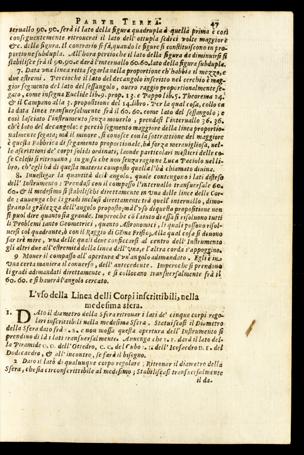 PARTE TERZA. 47
teruallo 90. 90. sarà il lato della figura quadrupla à quella prima e così
conseguentemente ritrouerà il lato del ottupla sedeci volte maggiore
&c. della figura. Il contrario si fà, quando le figure si constituiscono in pro-
portione subdupla. All'hora perciòche il lato della figura da diminuirsi si
stabilisce frà il 90. 90. e darà l'interuallo 60. 60. lato della figura subdupla.
7. Data una linea retta segarla nella proportione c'habbia il mezzo, e
due estremi. Perciòche il lato del decangolo inscritto nel cerchio è mag-
gior segmento del lato del sessangolo, ouero raggio proportionalmente se-
gata, come insegna Euclide lib. 9. prop. 13. e Pappo lib. 5. Theorema 14.
& il Campano alla 3. propositione del 14. libro. Per la qual cosa, collo ca
la data linea transuersalmente frà il 60. 60. come lato del sessangolo; e
così lasciato l'instrumento senza mouerlo, prendesi l'interuallo 36. 36.
ch'è lato del decangolo: e perciò segmento maggiore della linea proportio-
nalmente segata; mà il minore, si conosce con la sottrattione del maggiore
à questa fabrica di segamento proportionale, hà forza merauigliosa, nel-
le operationi de' corpi solidi ordinati, le onde particolari misteri della na-
se Celesti si ritrouano; in guisa che non senza ragione Luca Paciolo nel li-
bro, ch'egli hà di questa materia composto quella l'hà chiamata diuina.
8. Inuestigar la quantità de gl'angoli, quale contengono i lati disposti
dell' Instrumento: Prendasi con il compasso l'interuallo transuersale 60.
60. & il medesimo si stabilisca direttamente in una delle linee delle Cor-
de; auuenga che li gradi inclusi direttamente trà quell' interuallo, dimo-
strano la grandezza dell'angolo proposto, mà l'uso di questa propositione non
si può dire quanto sia grande. Imperoche cò l'aiuto di essa si risoluono tutti
li Problemi tanto Geometrici, quanto Astronomici, li quali possono risol-
uersi col quadrante, ò con il Raggio di Gēma Frisio, Alla qual cosa si deuono
far trè mire, una delle quali deue conficcarsi al centro dell' Instrumento
gli altri due all'estremità della linea dell'una, e l'altra corda s'appongano.
9 Mouer il compasso all' apertura d'un'angolo adimandato. Egli è in
una certa maniera al conuerso, dell' antecedente. Imperochè si prendono
li gradi adimandati direttamente, e si collocano transuersalmente frà il
60. 60. e si hauerà l'angolo cercato.
L'vso della Linea delli Corpi inscrittibili, nella
medesima sfera.
1. DAto il diametro della Sfera ritrouar i lati de' cinque corpi rego-
lari inscrittibili nella medesima Sfera. Statuiscasi il Diametro
della Sfera dato frà 1. 2. e non mossa questa apertura dell' Instrumento si
prendono di là i lati transuersalmente. Auuenga che 1. 1. darà il lato del-
la Piramide O. O. dell' Ottedro, C. C. del Cubo 1. 1. dell' Icosaedro D. 1. del
Dodecaedro, & all'incontro, se sarà il bisogno.
2 Dato il lato di qualunque corpo regolare; Ritrouar il diametro della
Sfera, che sia circonscrittibile al medesimo; Stabiliscasi transuersalmente
il da-